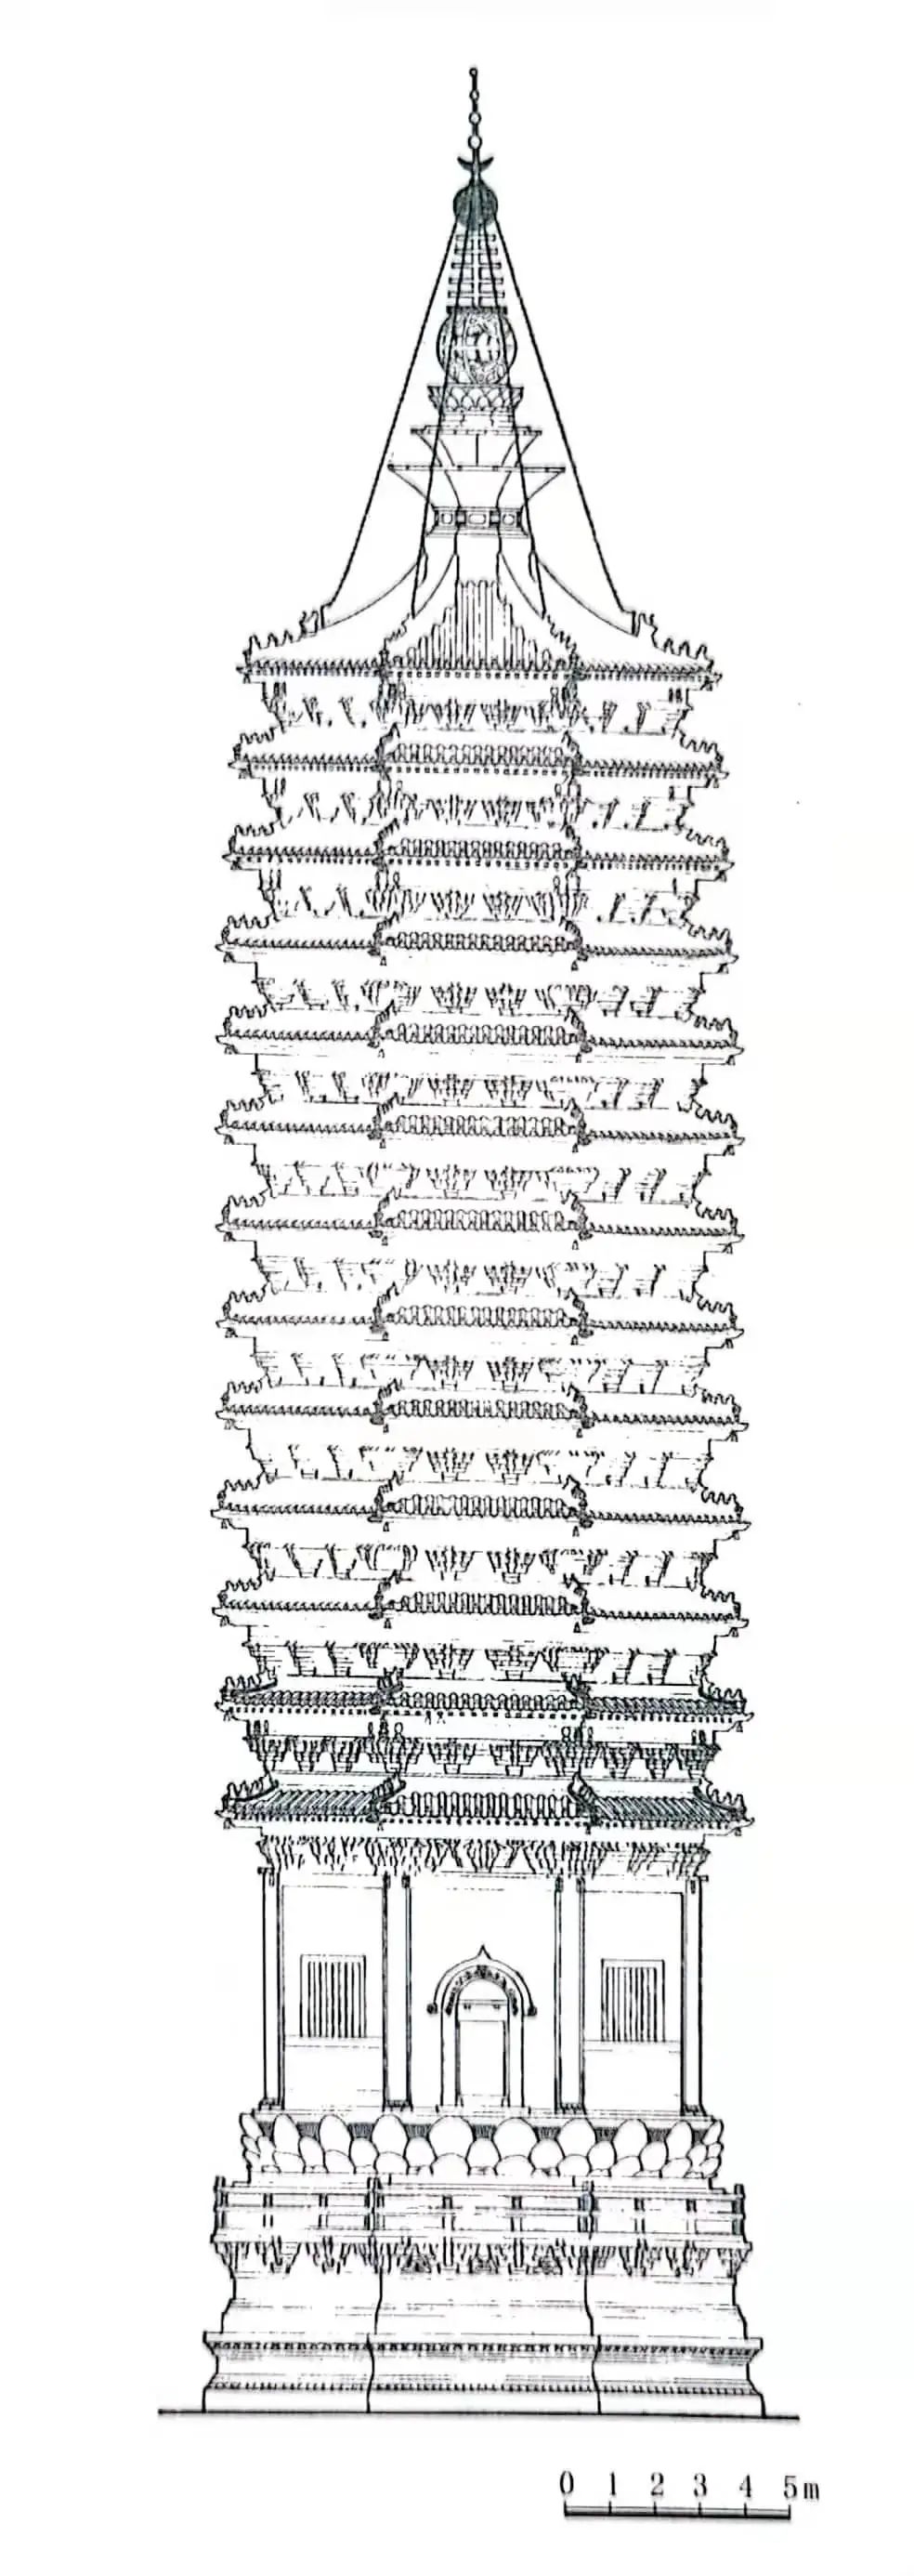 0 1 2 3 4 5m